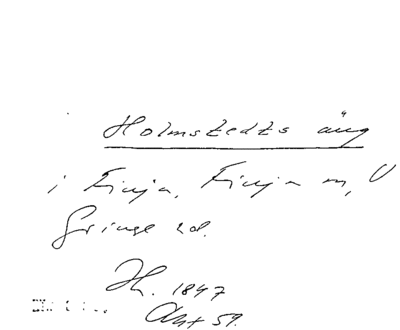 Holmstedts äng
i Finja, Finja sn, V
Göinge hd.
Hl. 1847
Akt 59.